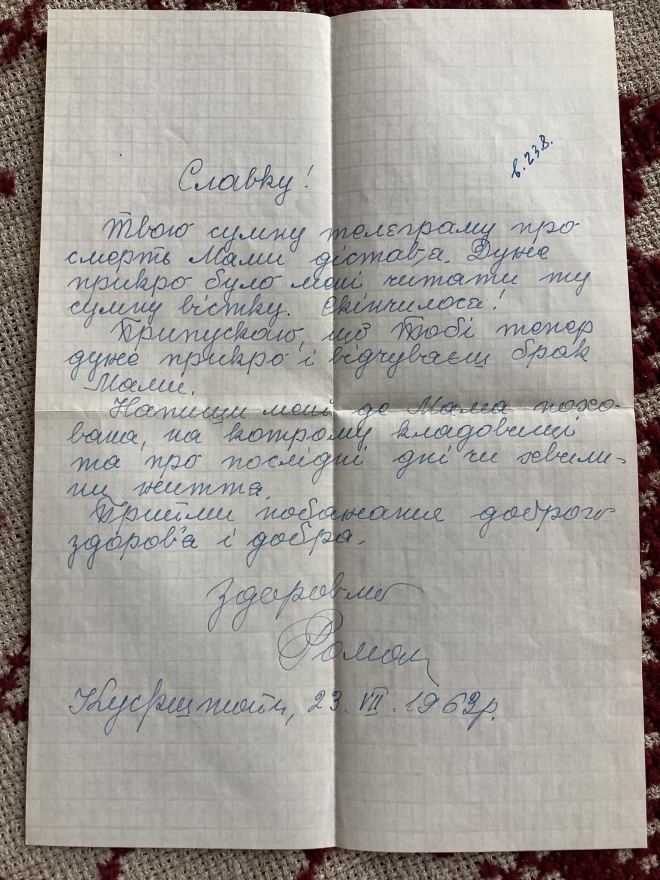 в. 23.8.
Славку!
Твою сумну телеграму про
смерть Мами діставʼа. Дуже
прикро було мені читати ту
сумну вістку. Скінчилося!
Припускаю, що Тобі тепер
дуже прикро і відчуваєш брак
Мами.
Напиши мені де Мама похо-
вана, на котрому кладовищі
та про послідні дні чи хвили-
ни життя.
Прийми побажання доброго
здоровʼа і добра.
Здоровлю
Роман
23. VII. 1963р.